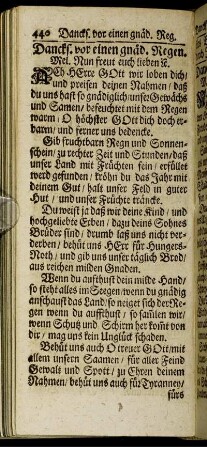 440 Dancks. vor einen gnäd. Reg.
Dancks. vor einen gnäd. Regen.
Mel. Nun freut euch lieben ꝛc.
ACh HErre GOtt wir loben dich/
und preisen deinen Nahmen/ daß
du uns hast so gnädiglich/ unser Gewächs
und Samen/ befeuchtet mit dem Regen
warm/ O höchster GOtt dich doch er-
barm/ und ferner uns bedencke.
Gib fruchtbarn Regn und Sonnen-
schein/ zu rechter Zeit und Stunden/ daß
unser Land mit Früchten fein/ erfüllet
werd gefunden/ kröhn du das Jahr mit
deinem Gut/ halt unser Feld in guter
Hut/ und unser Früchte
Du weist ja daß wir deine Kind/ und
hochgeliebte Erben/ dazu deins Sohnes
Brüder sind/ drumb laß uns nicht ver-
derben/ behüt uns HErr für Hungers-
Noth/ und gib uns unser täglich Brod/
aus reichen milden Gnaden.
Wenn du aufthust dein milde Hand/
so steht alles im Seegen/ wenn du gnädig
anschauft das Land/ so neiget sich der Re-
gen wenn du aufthust/ so samlen wir/
wenn Schutz und Schirm her komt von
dir/ mag uns kein Unglück schaden.
Behüt uns auch O treuer GOtt/ mit
allem unsern Saamen/ für aller Feind
Gewals und Spott/ zu Ehren deinem
Nahmen/ behüt uns auch für Tyranney/
fürs